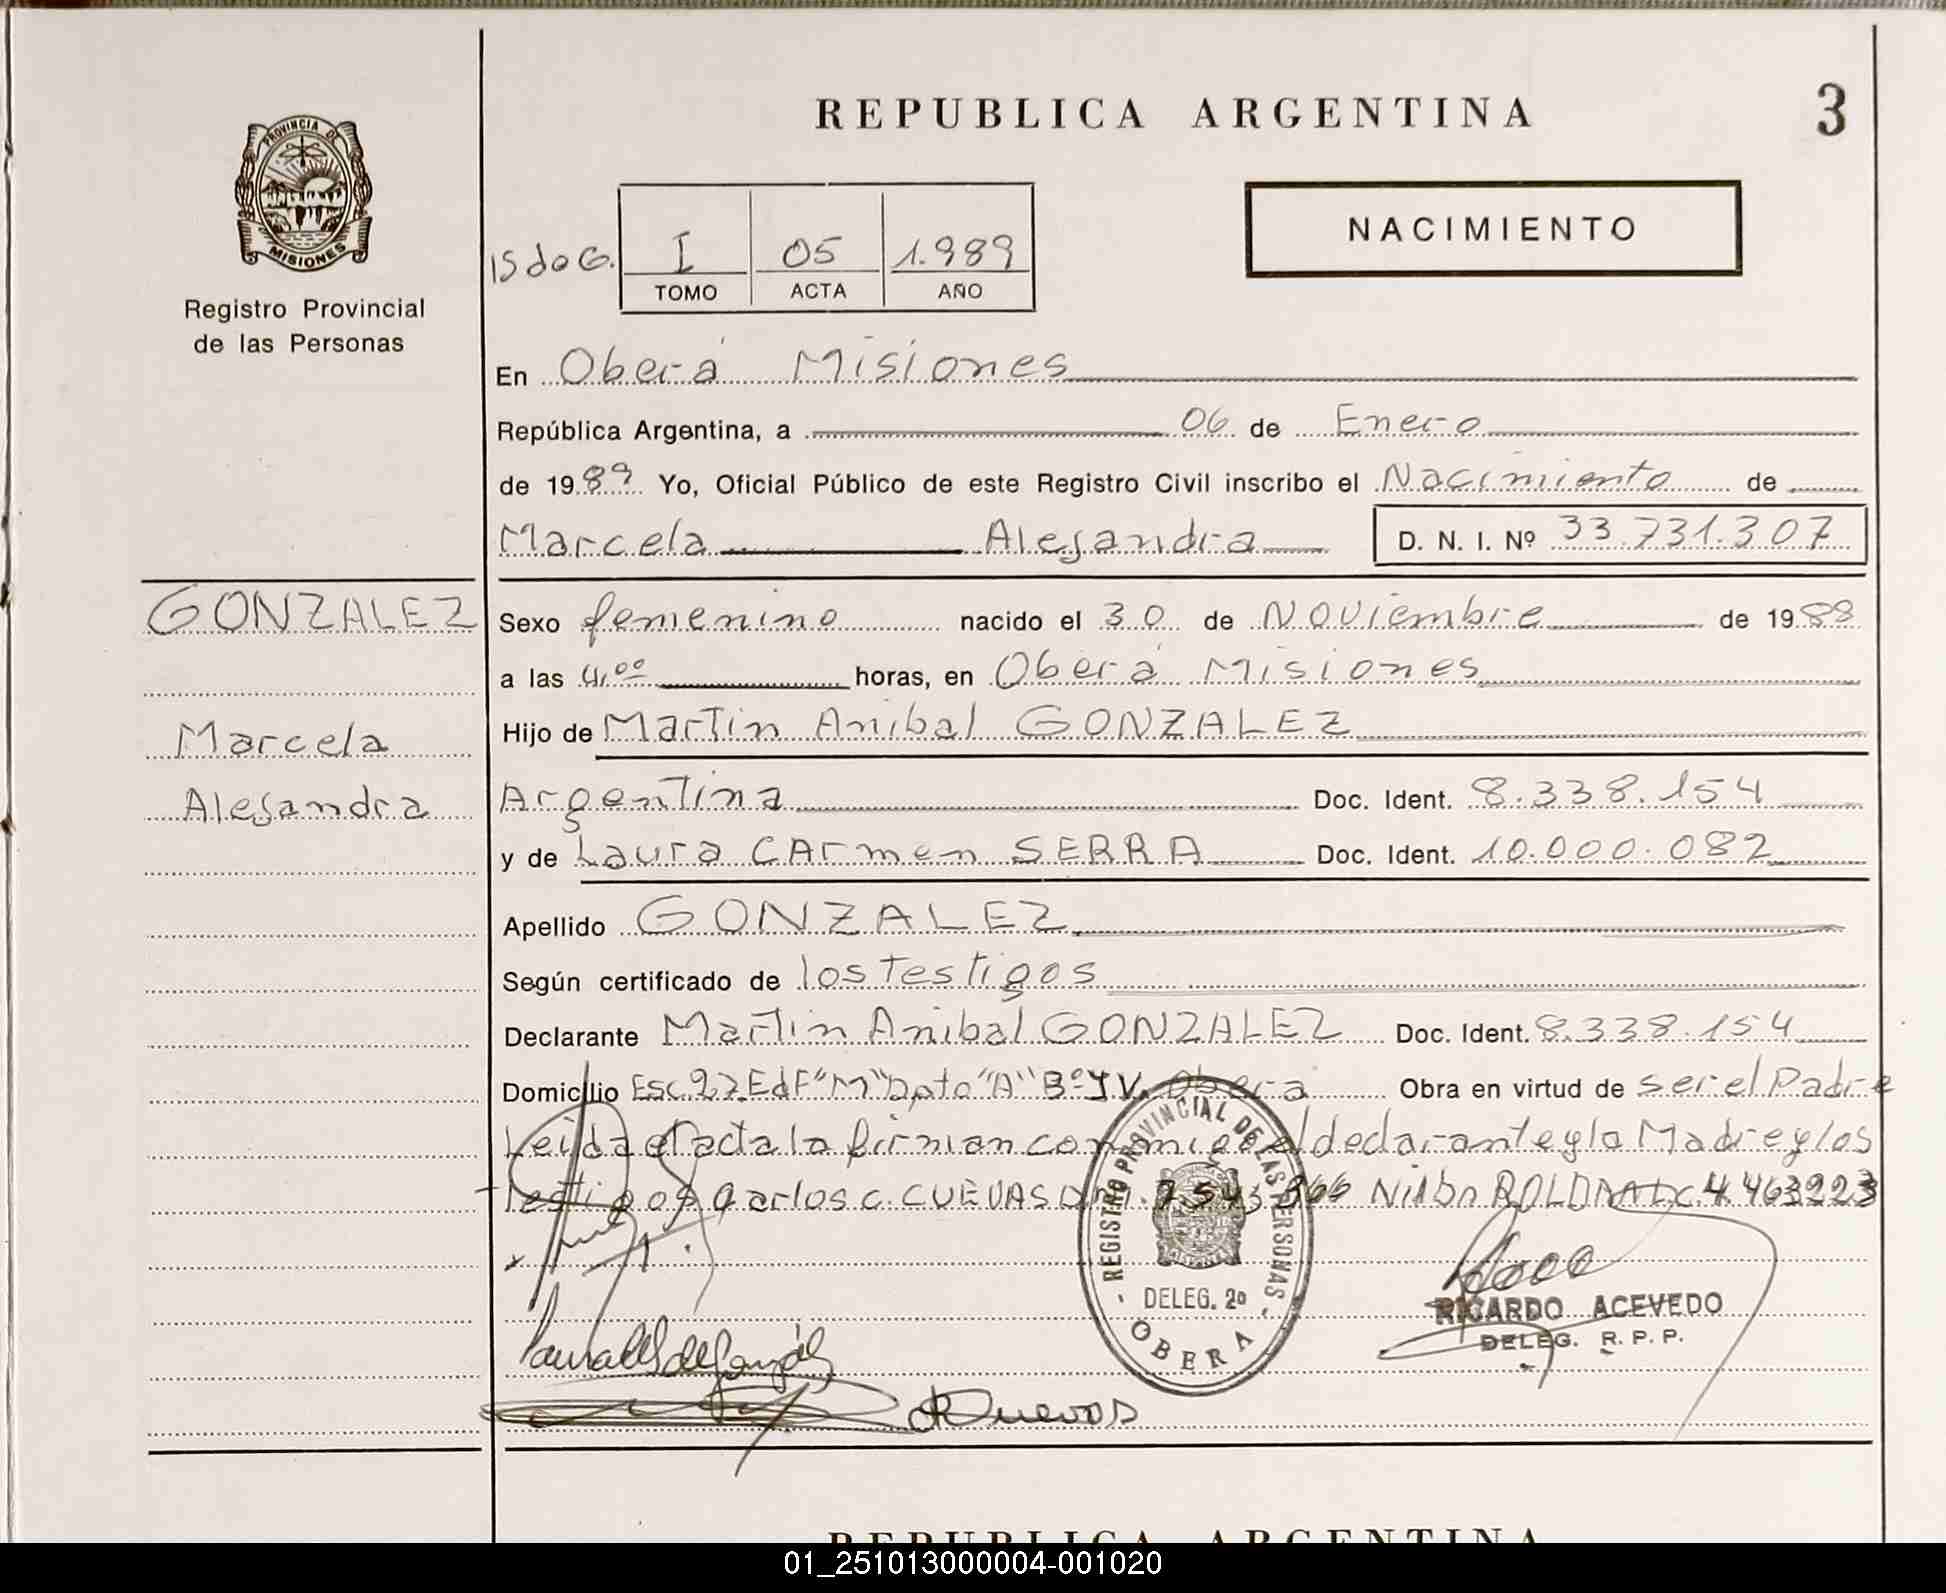 REPUBLICA ARGENTINA
3
PROVINCIA DE
MISIONES
Registro Provincial
de las Personas
NACIMIENTO
I 05 1.989
TOMO ACTA AÑO
En Oberá Misiones
República Argentina, a 06 de Enero
de 1989 Yo, Oficial Público de este Registro Civil inscribo el Nacimiento de
Marcela Alejandra D. N. I. Nº 33.731.307
GONZALEZ
Marcela
Alejandra
Sexo femenino nacido el 30 de Noviembre de 1988
a las 4,00 horas, en Oberá Misiones
Hijo de Martin Anibal GONZALEZ
Argentina Doc. Ident. 8.338.154
y de Laura CArmen SERRA Doc. Ident. 10.000.082
Apellido GONZALEZ
Según certificado de los Testigos
Declarante Martin Anibal GONZALEZ Doc. Ident. 8.338.154
Domicilio Esc. 27 EdF "M" Dpto "A" Bº I.V. Obera Obra en virtud de ser el Padre
Leida el acta la firman conmigo el declarante y la Madre y los
Testigos Carlos C. CUEVAS 4.463223
REGISTRO PROVINCIAL DE LAS PERSONAS
DELEG. 2º
OBERA
RICARDO ACEVEDO
DELEG. R. P. P.
REPUBLICA ARGENTINA
01_251013000004-001020